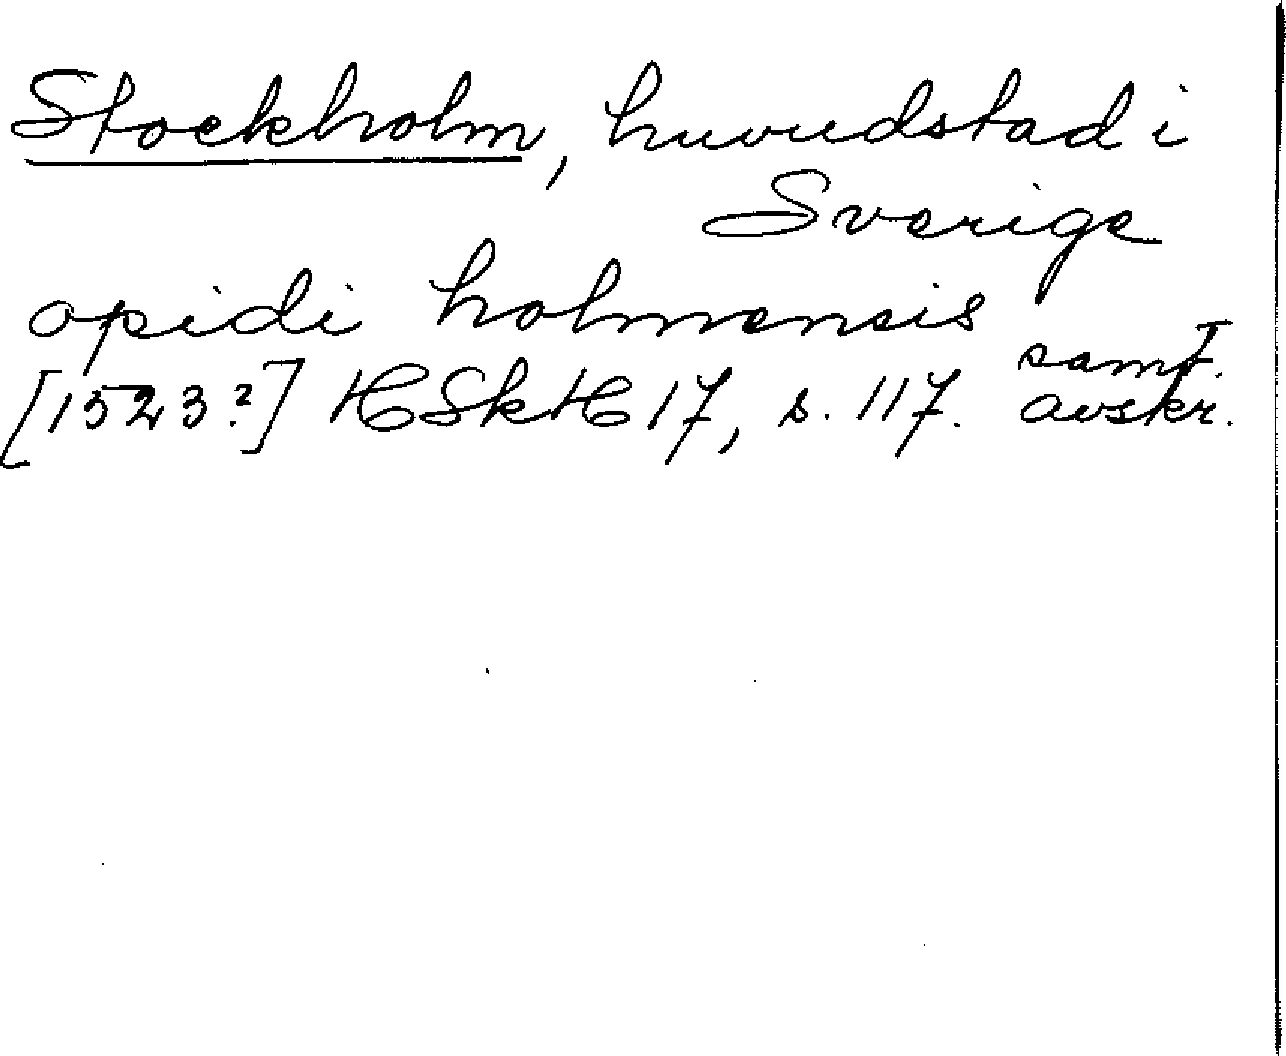 Stockholm, huvudstad i
Sverige
opidi holmensis
samt.
[1523?] HSkH 17, s. 117. avskr.